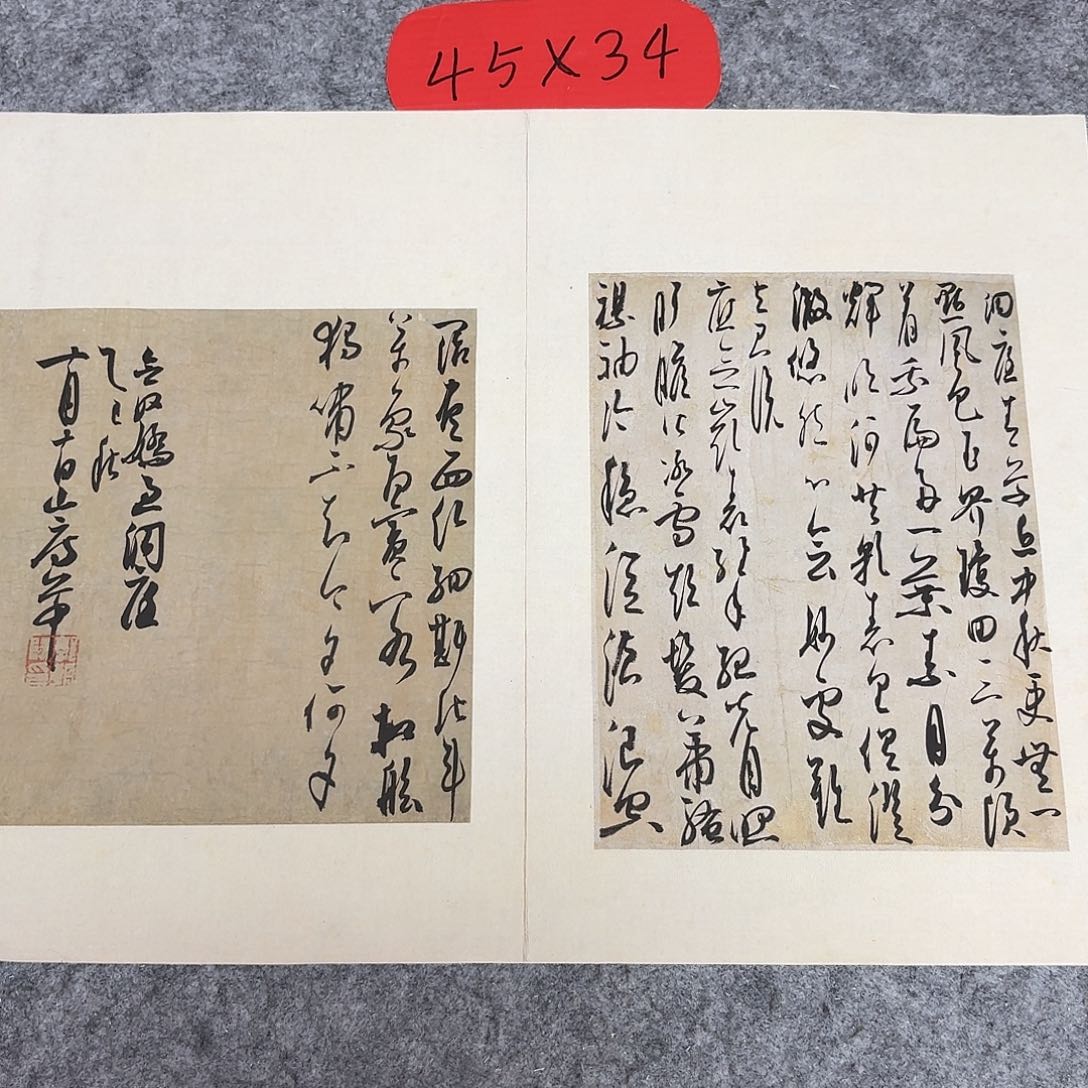 45×34
洞庭青草近中秋更無一
點風色玉界瓊田三萬頃
著我扁舟一葉素月分
輝明河共影表裏俱澄
澈悠然心會妙處難
與君說
應念嶺表經年孤光自照
肝膽皆冰雪短髮蕭騷
襟袖冷穩泛滄浪空
闊盡西江細斟北斗
萬象為賓客扣舷
獨嘯不知今夕何夕
念奴嬌過洞庭
乙巳秋
十月十日山房草